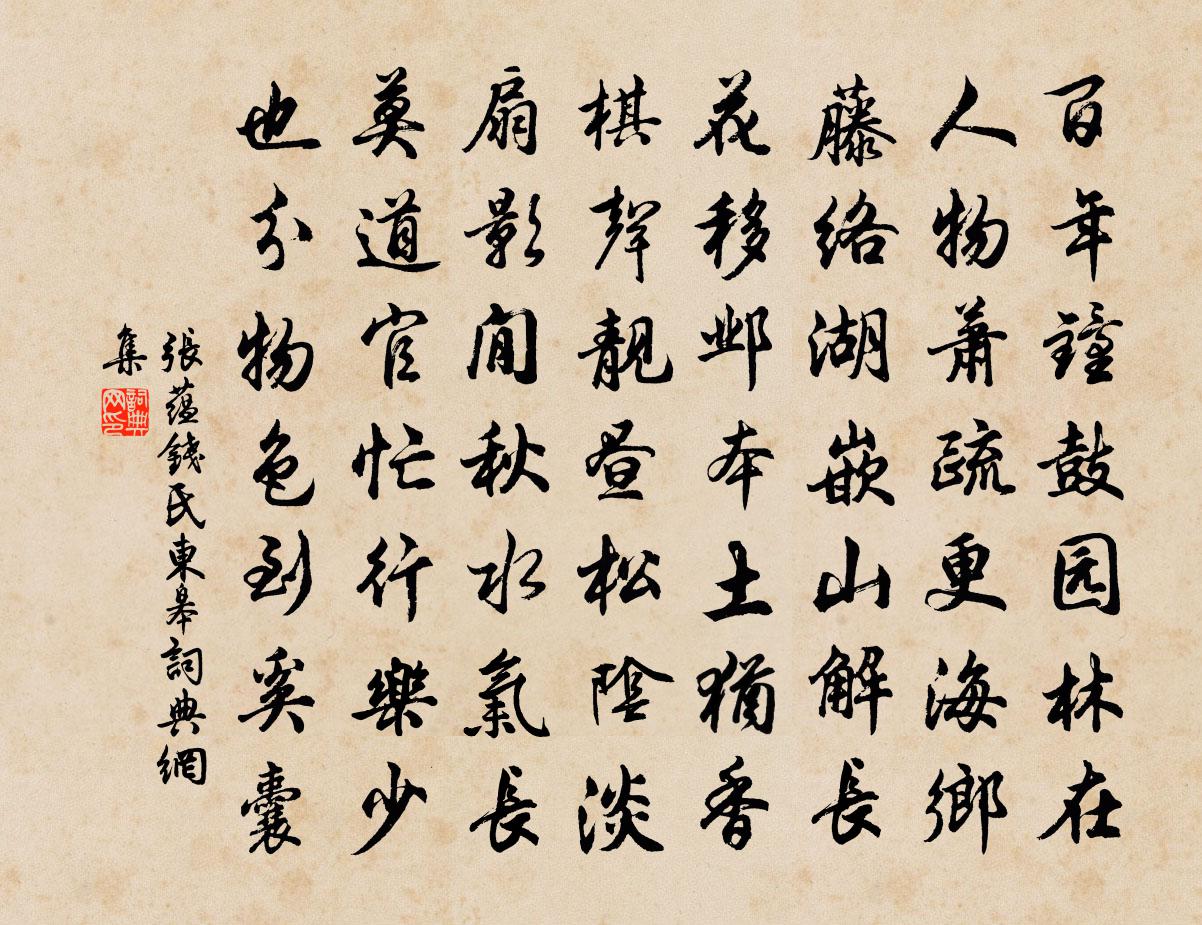 百年鐘鼓园林在
人物萧疏更海鄉
藤络湖山嵌解長
花移邺本土猶香
棋聲靚昼松陰淡
扇影閒秋水氣長
莫道官忙行樂少
也分物色到奚囊
張蕴錢氏東皋詞典網
集
詞典
网印